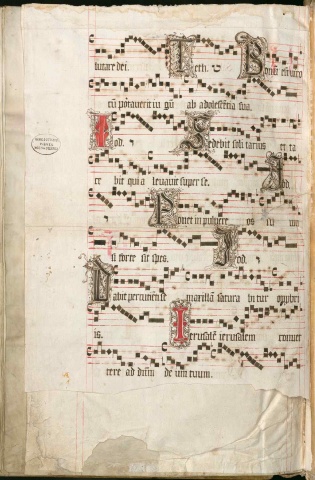 lutare dei. Teth. ט Bonū est viro
cū portaverit iugū ab adolescētia sua.
Iod. Sedebit soli tarius et ta
ce bit quia levavit super se. Iod.
Ponet in pulvere os su um
si forte sit spes. Iod. י
Dabit percutienti se maxillā satura bi tur opprobri
is. Ierusalē ierusalem conver
tere ad dn̄m de um tuum.